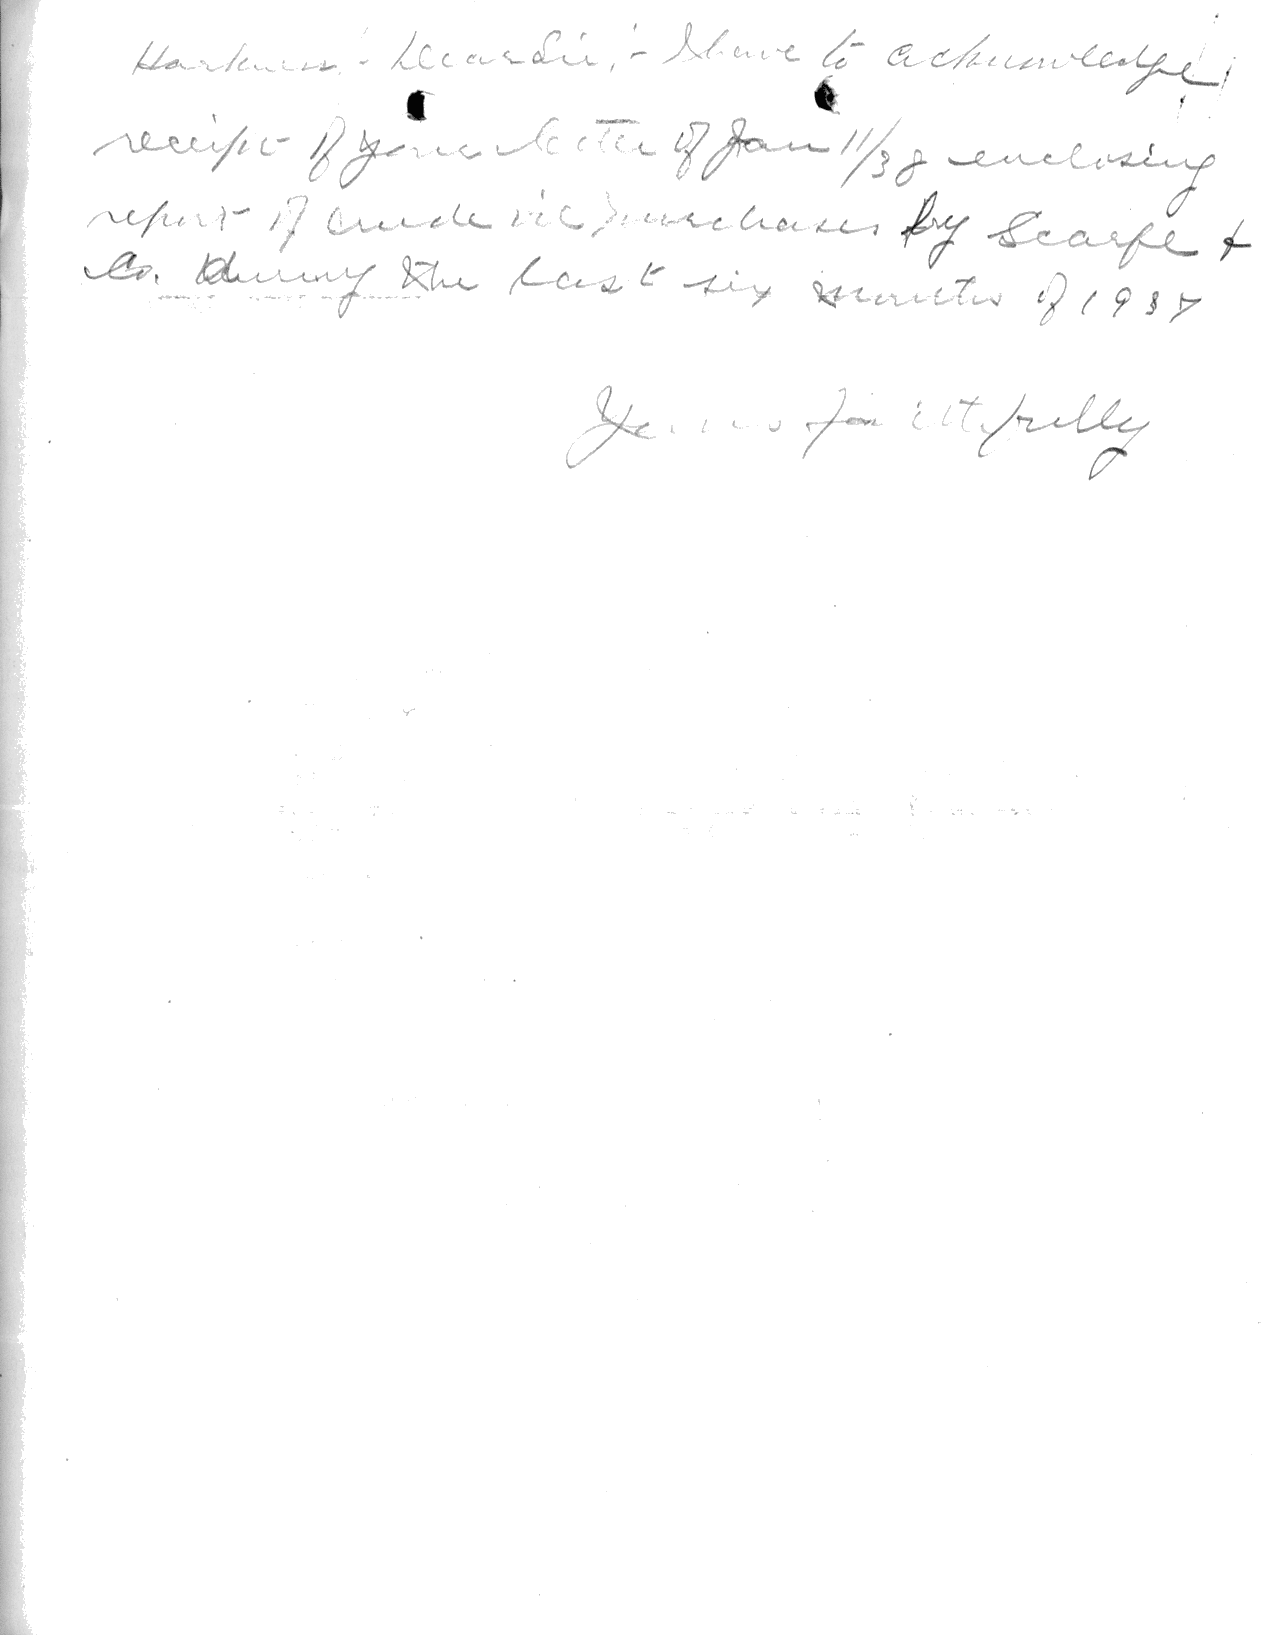 Harkness:- Dear Sir:- I have to acknowledge
receipt of your letter of Jan 11/38 enclosing
report of crude oil purchases by Scarfe &
Co. during the last six months of 1937
Yours faithfully